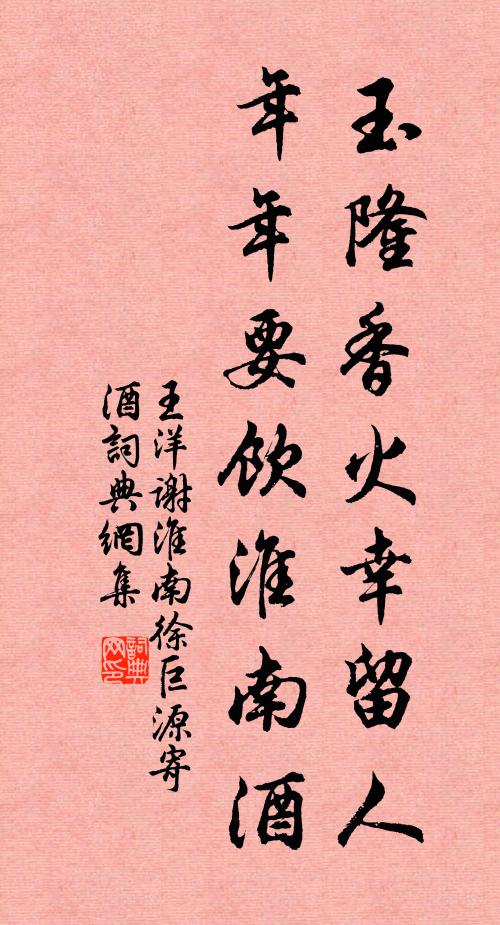 玉隆香火幸留人
年年要飲淮南酒
王洋謝淮南徐巨源寄
酒詞典網集
詞典网印